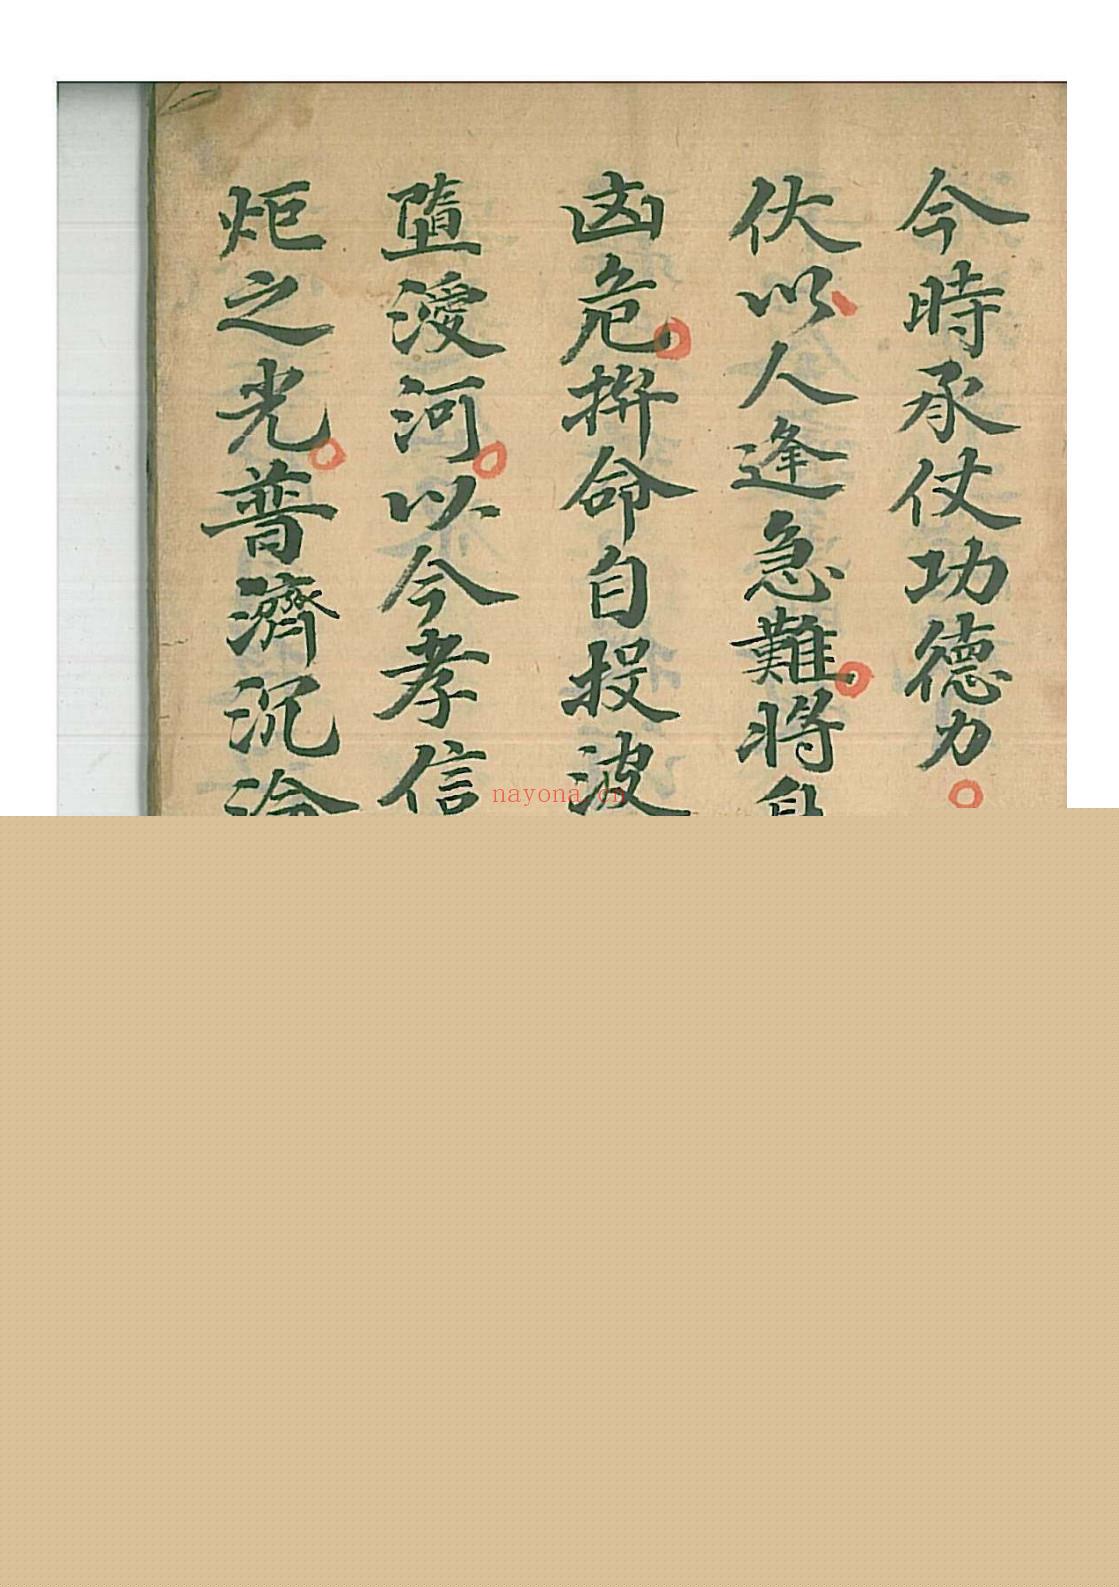 今時承仗功德力
伏以人逢急難將
凶危拚命自投波
墮漫河以今孝信
炬之光普濟沉淪
nayona.cn